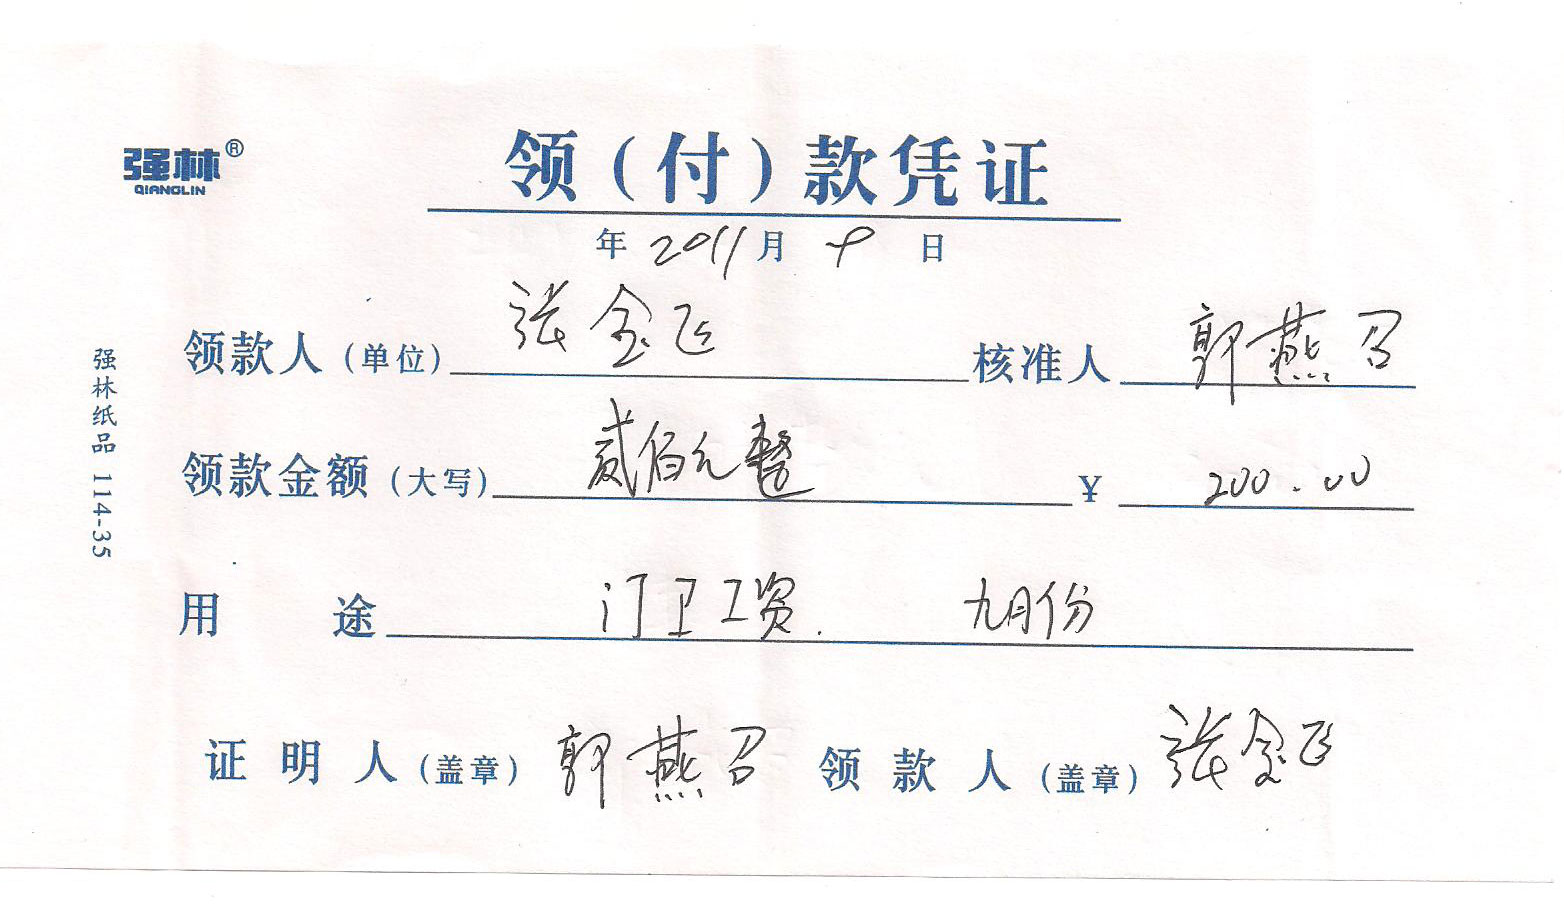 强林®
QIANGLIN
领（付）款凭证
年 2011 月 9 日
领款人（单位） 张金飞 核准人 郭燕召
领款金额（大写） 贰佰元整 ¥ 200.00
用 途 门卫工资. 九月份
证 明 人（盖章） 郭燕召 领 款 人（盖章） 张金飞
强林纸品 114-35